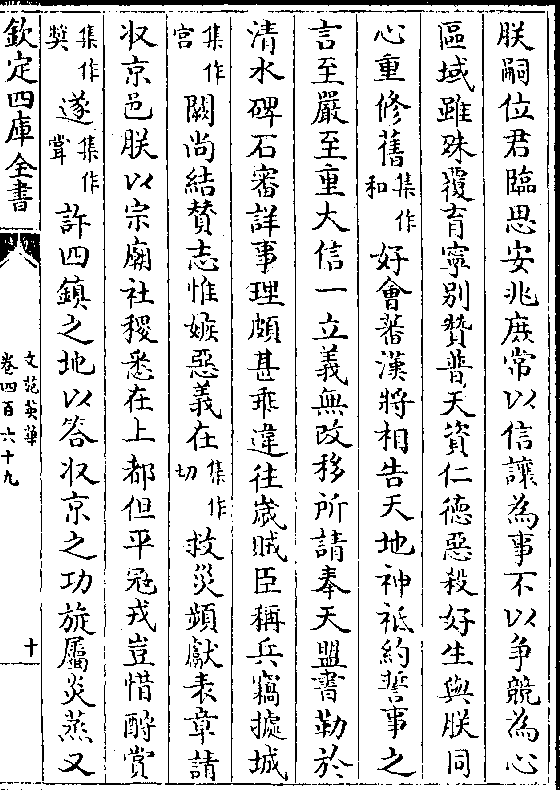 朕嗣位君臨思安兆庶常以信讓為事不以争競為心
區域雖殊覆育寧別贊普天資仁德惡殺好生與朕同
心重修舊集作和好會蕃漢將相告天地神祗約誓事之
言至嚴至重大信一立義無改移所請奉天盟書勒於
清水碑石審詳事理頗甚乖違往歳賊臣稱兵竊據城
集作宫闕尚結賛志惟嫉惡義在集作切救災頻獻表章請
収京邑朕以宗廟社稷悉在上都但平冦戎豈惜酧賞
集作奬遂集作嘗許四鎮之地以答収京之功旋屬炎蒸又
欽定四庫全書
文苑英華
卷四百六十九
十